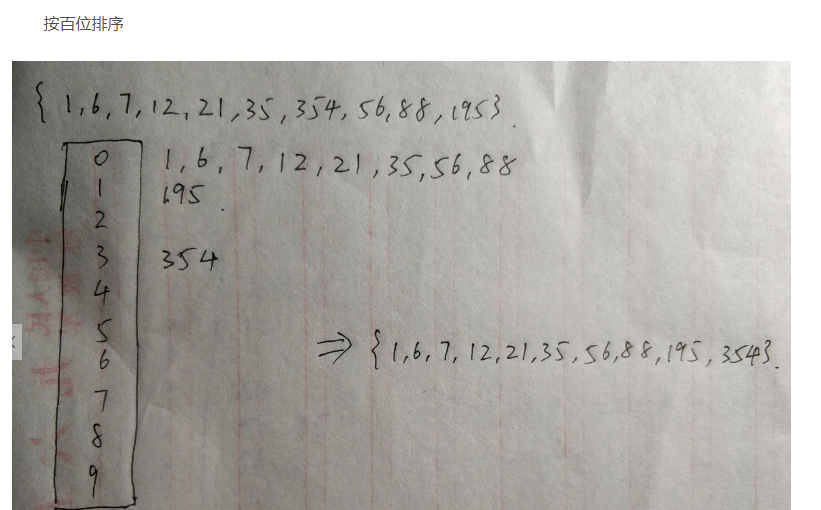 按百位排序
{ 1,6,7,12,21,35,354,56,88,195}.
0 1,6,7,12,21,35,56,88
1 195.
2
3 354
4
5
⇒ { 1,6,7,12,21,35,56,88,195,354}.
6
7
8
9